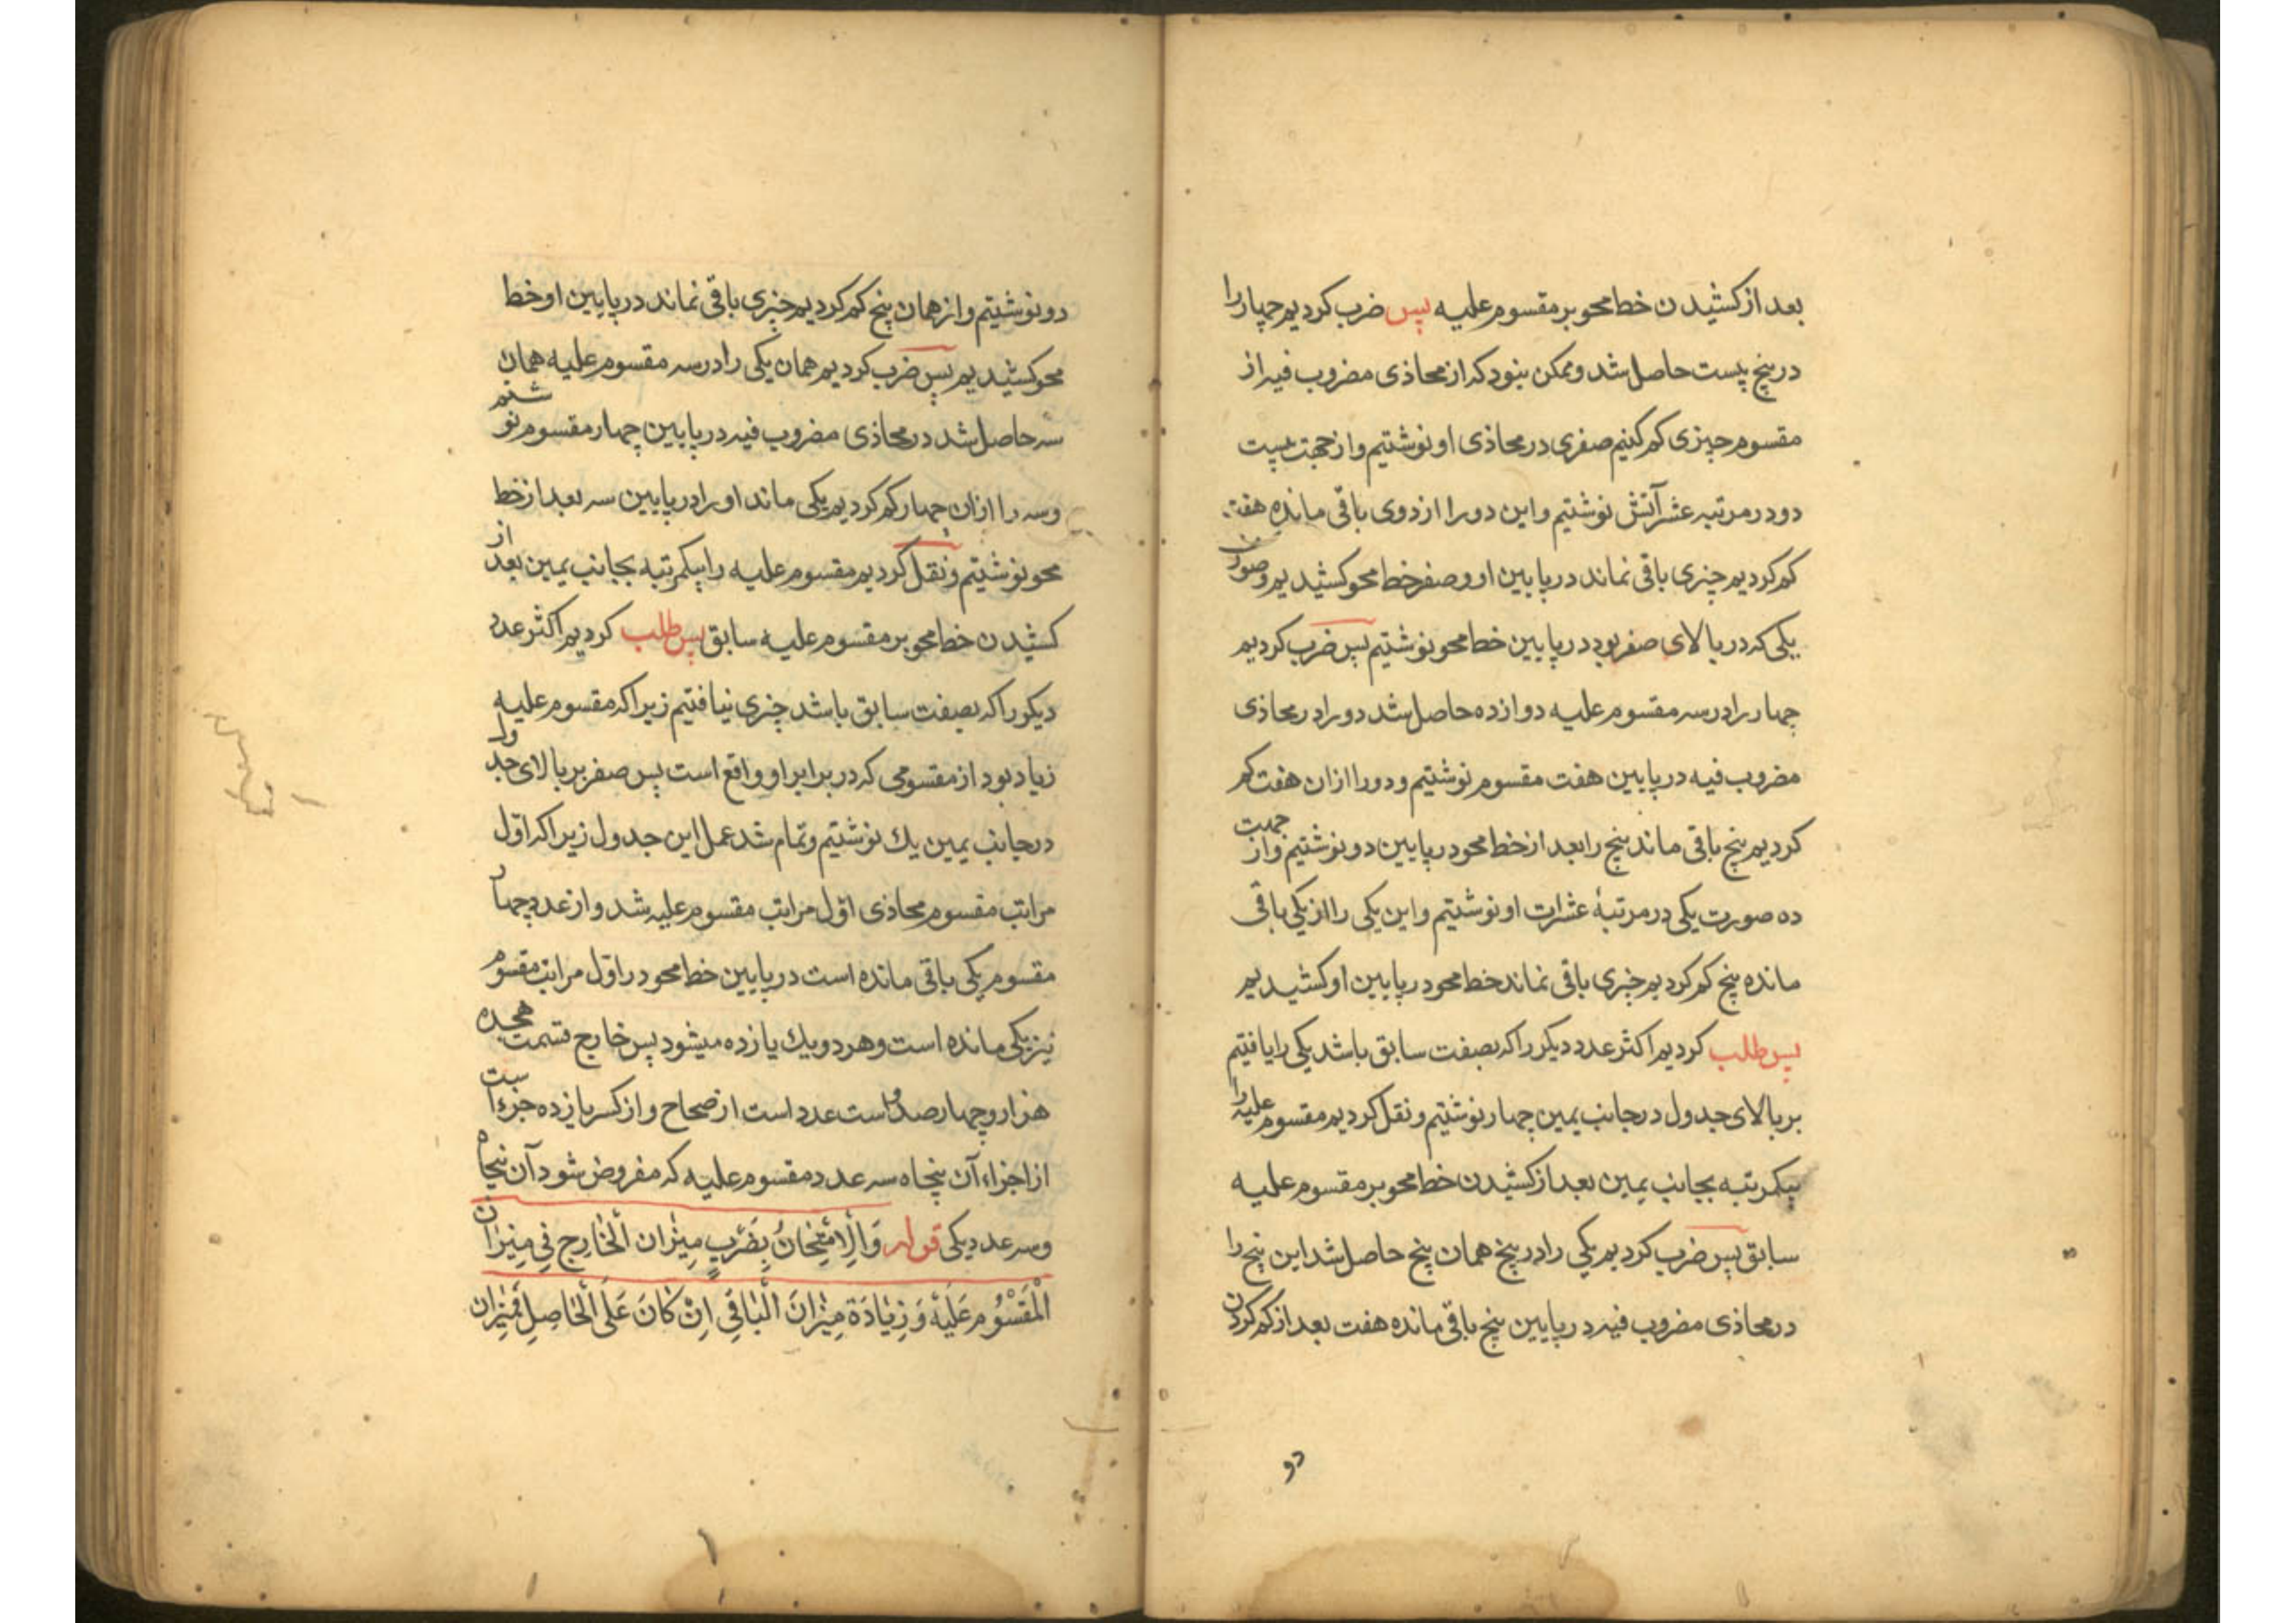 بعد از کشیدن خط محو بر مقسوم علیه پس ضرب کردیم چهار را
در پنج بیست حاصل شد و ممکن نبود که از محاذی مضروب فیه از
مقسوم چیزی کم کنیم صفری در محاذی او نوشتیم و از جهت بیست
دو در مرتبه عشرآتش نوشتیم و این دو را از دوی باقی مانده هفت
کم کردیم چیزی باقی نماند در پایین او و صفر خط محو کشیدیم و صورت
یکی که در بالای صفر بود در پایین خط محو نوشتیم پس ضرب کردیم
چهار را در سه مقسوم علیه دوازده حاصل شد دو را در محاذی
مضروب فیه در پایین هفت مقسوم نوشتیم و دو را از ان هفت کم
کردیم پنج باقی ماند پنج را بعد از خط محو در پایین دو نوشتیم و از جهت
ده صورت یکی در مرتبهٔ عشرات او نوشتیم و این یکی را از یکی باقی
مانده پنج کم کردیم چیزی باقی نماند خط محو در پایین او کشیدیم
پس طلب کردیم اکثر عدد دیکر را که بصفت سابق باشد یکی را یافتیم
بر بالای جدول در جانب یمین چهار نوشتیم و نقل کردیم مقسوم علیه را
بیکمرتبه بجانب یمین بعد از کشیدن خط محو بر مقسوم علیه
سابق پس ضرب کردیم یکی را در پنج همان پنج حاصل شد این پنج را
در محاذی مضروب فیه در پایین پنج باقی مانده هفت بعد از کم کردن
دو
دو نوشتیم و از همان پنج کم کردیم چیزی باقی نماند در پایین او خط
محو کشیدیم پس ضرب کردیم همان یکی را در سه مقسوم علیه همان
سه حاصل شد در محاذی مضروب فیه در پایین چهار مقسوم نوشتیم
و سه را از ان چهار کم کردیم یکی ماند او را در پایین سه بعد از خط
محو نوشتیم و نقل کردیم مقسوم علیه را بیکمرتبه بجانب یمین بعد از
کشیدن خط محو بر مقسوم علیه سابق پس طلب کردیم اکثر عدد
دیکر را که بصفت سابق باشد چیزی نیافتیم زیرا که مقسوم علیه
زیاد بود از مقسومی که در برابر او واقع است پس صفر بر بالای جدول
در جانب یمین یك نوشتیم و تمام شد عمل این جدول زیرا که اوّل
مراتب مقسوم محاذی اوّل مراتب مقسوم علیه شد و از عدد چهار
مقسوم یکی باقی مانده است در پایین خط محو در اوّل مراتب مقسوم
نیز یکی مانده است و هر دو یك یازده میشود پس خارج قسمت هجده
هزار و چهار صد و است عدد است از صحاح و از کسر یازده جزء است
از اجزاء آن پنجاه سه عدد مقسوم علیه که مفروض شود آن پنجاه
و سه عدد یکی قوله وَالْاِمْتِحَانُ بِضَرْبِ مِیْزَانِ الْخَارِجِ فِی مِیْزَانِ
الْمَقْسُوْمِ عَلَیْهِ وَ زِیَادَةِ مِیْزَانَ الْبَاقِی اِنْ کَانَ عَلَی الْحَاصِلِ فَمِیْزَان